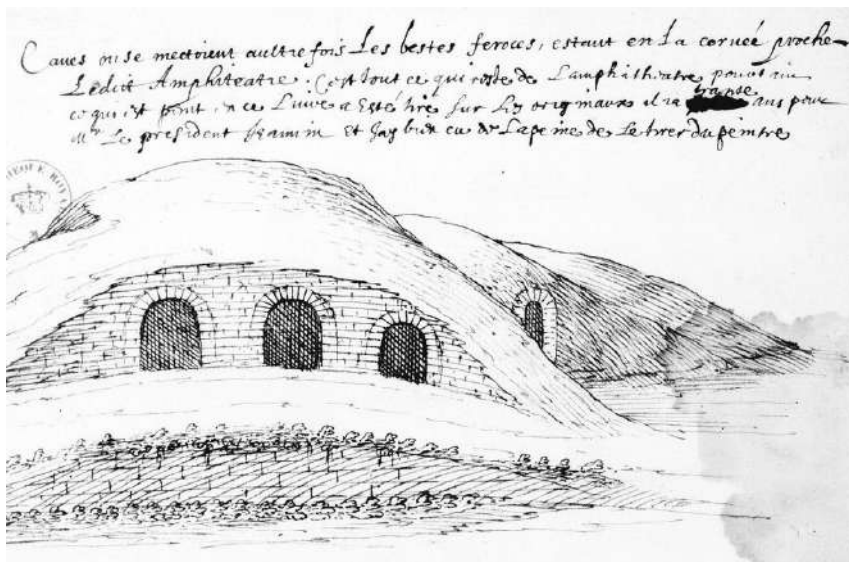 Caves ou se mectoient aultrefois Les bestes feroces, estant en La corvée proche
Ledict Amphiteatre. C'est tout ce qui reste de Lamphitheatre
trante
ce qui est paint en ce Livre a Esté tiré sur Les originaux il i a ans pour
Mr Le president Jeannin Et Jay bien eu de La peine de Le tirer du peintre